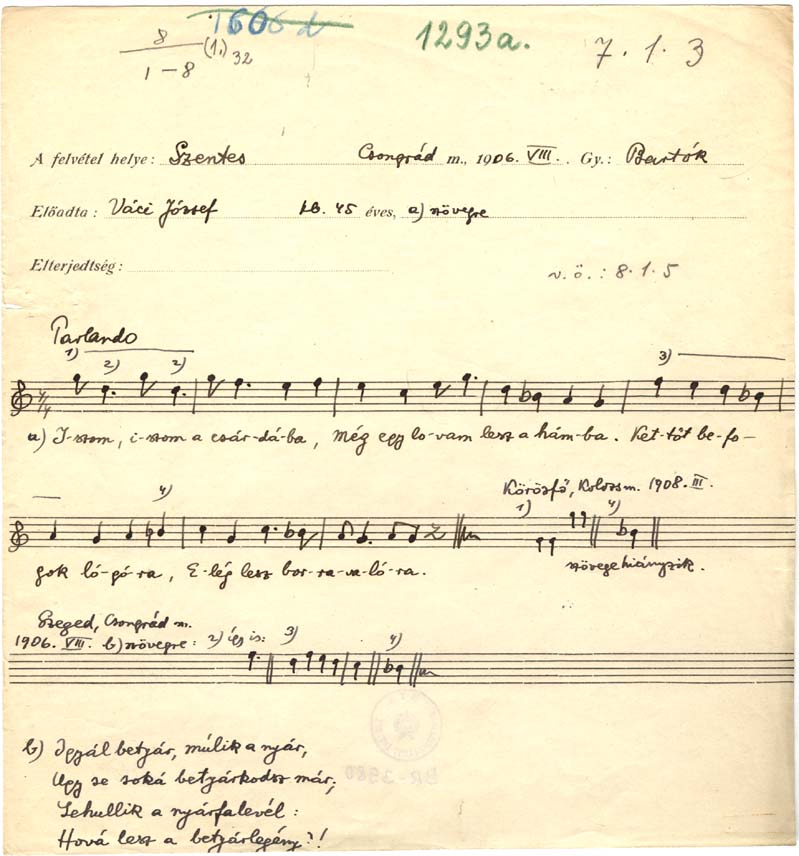 8
1–8 (1.) 32
1293a.
7.1.3
A felvétel helye: Szentes Csongrád m., 1906. VIII. Gy.: Bartók
Előadta: Váci József kb. 45 éves, a) szövegre
Elterjedtség:
v.ö.: 8.1.5
Parlando
1) 2) 2) 3)
4/4
a) I-szom, i-szom a csár-dá-ba, Még egy lo-vam lesz a hám-ba. Ket-tőt be-fo-
4)
Körösfő, Kolozs m. 1908. III.
1) 4)
gok ló-gó-ra, E-lég lesz bor-ra-va-ló-ra.
szövege hiányzik.
Szeged, Csongrád m.
1906. VIII. b) szövegre: 2) így is: 3) 4)
b) Igyál betyár, múlik a nyár,
Úgy se soká betyárkodsz már;
Lehullik a nyárfalevél:
Hová lesz a betyárlegény?!
BR-3980